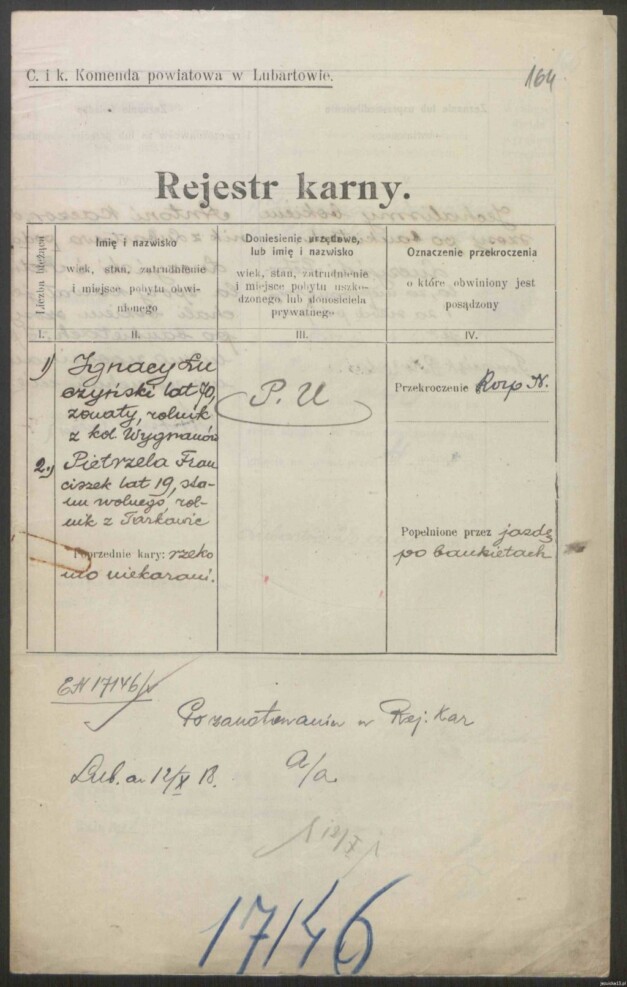 C. i k. Komenda powiatowa w Lubartowie.
164
Rejestr karny.
Liczba bieżąca
Imię i nazwisko
wiek, stan, zatrudnienie
i miejsce pobytu obwi-
nionego
Doniesienie urzędowe,
lub imię i nazwisko
wiek, stan, zatrudnienie
i miejsce pobytu uszko-
dzonego lub donosiciela
prywatnego
Oznaczenie przekroczenia
o które obwiniony jest
posądzony
I.
II.
III.
IV.
1) Ignacy Łu
czyński lat 70,
żonaty, rolnik
z kol Wygnanów
2.) Pietrzela Fran
ciszek lat 19, sta-
nu wolnego, rol-
nik z Tarkawic
Poprzednie kary: rzeko
mo niekarani.
P. U
Przekroczenie Rozp N.
Popełnione przez jazdę
po bankietach
EN 17146/
Po zanotowaniu w Rej. Kar
a/a.
Lub. dn 12/X 18.
12/X
17146